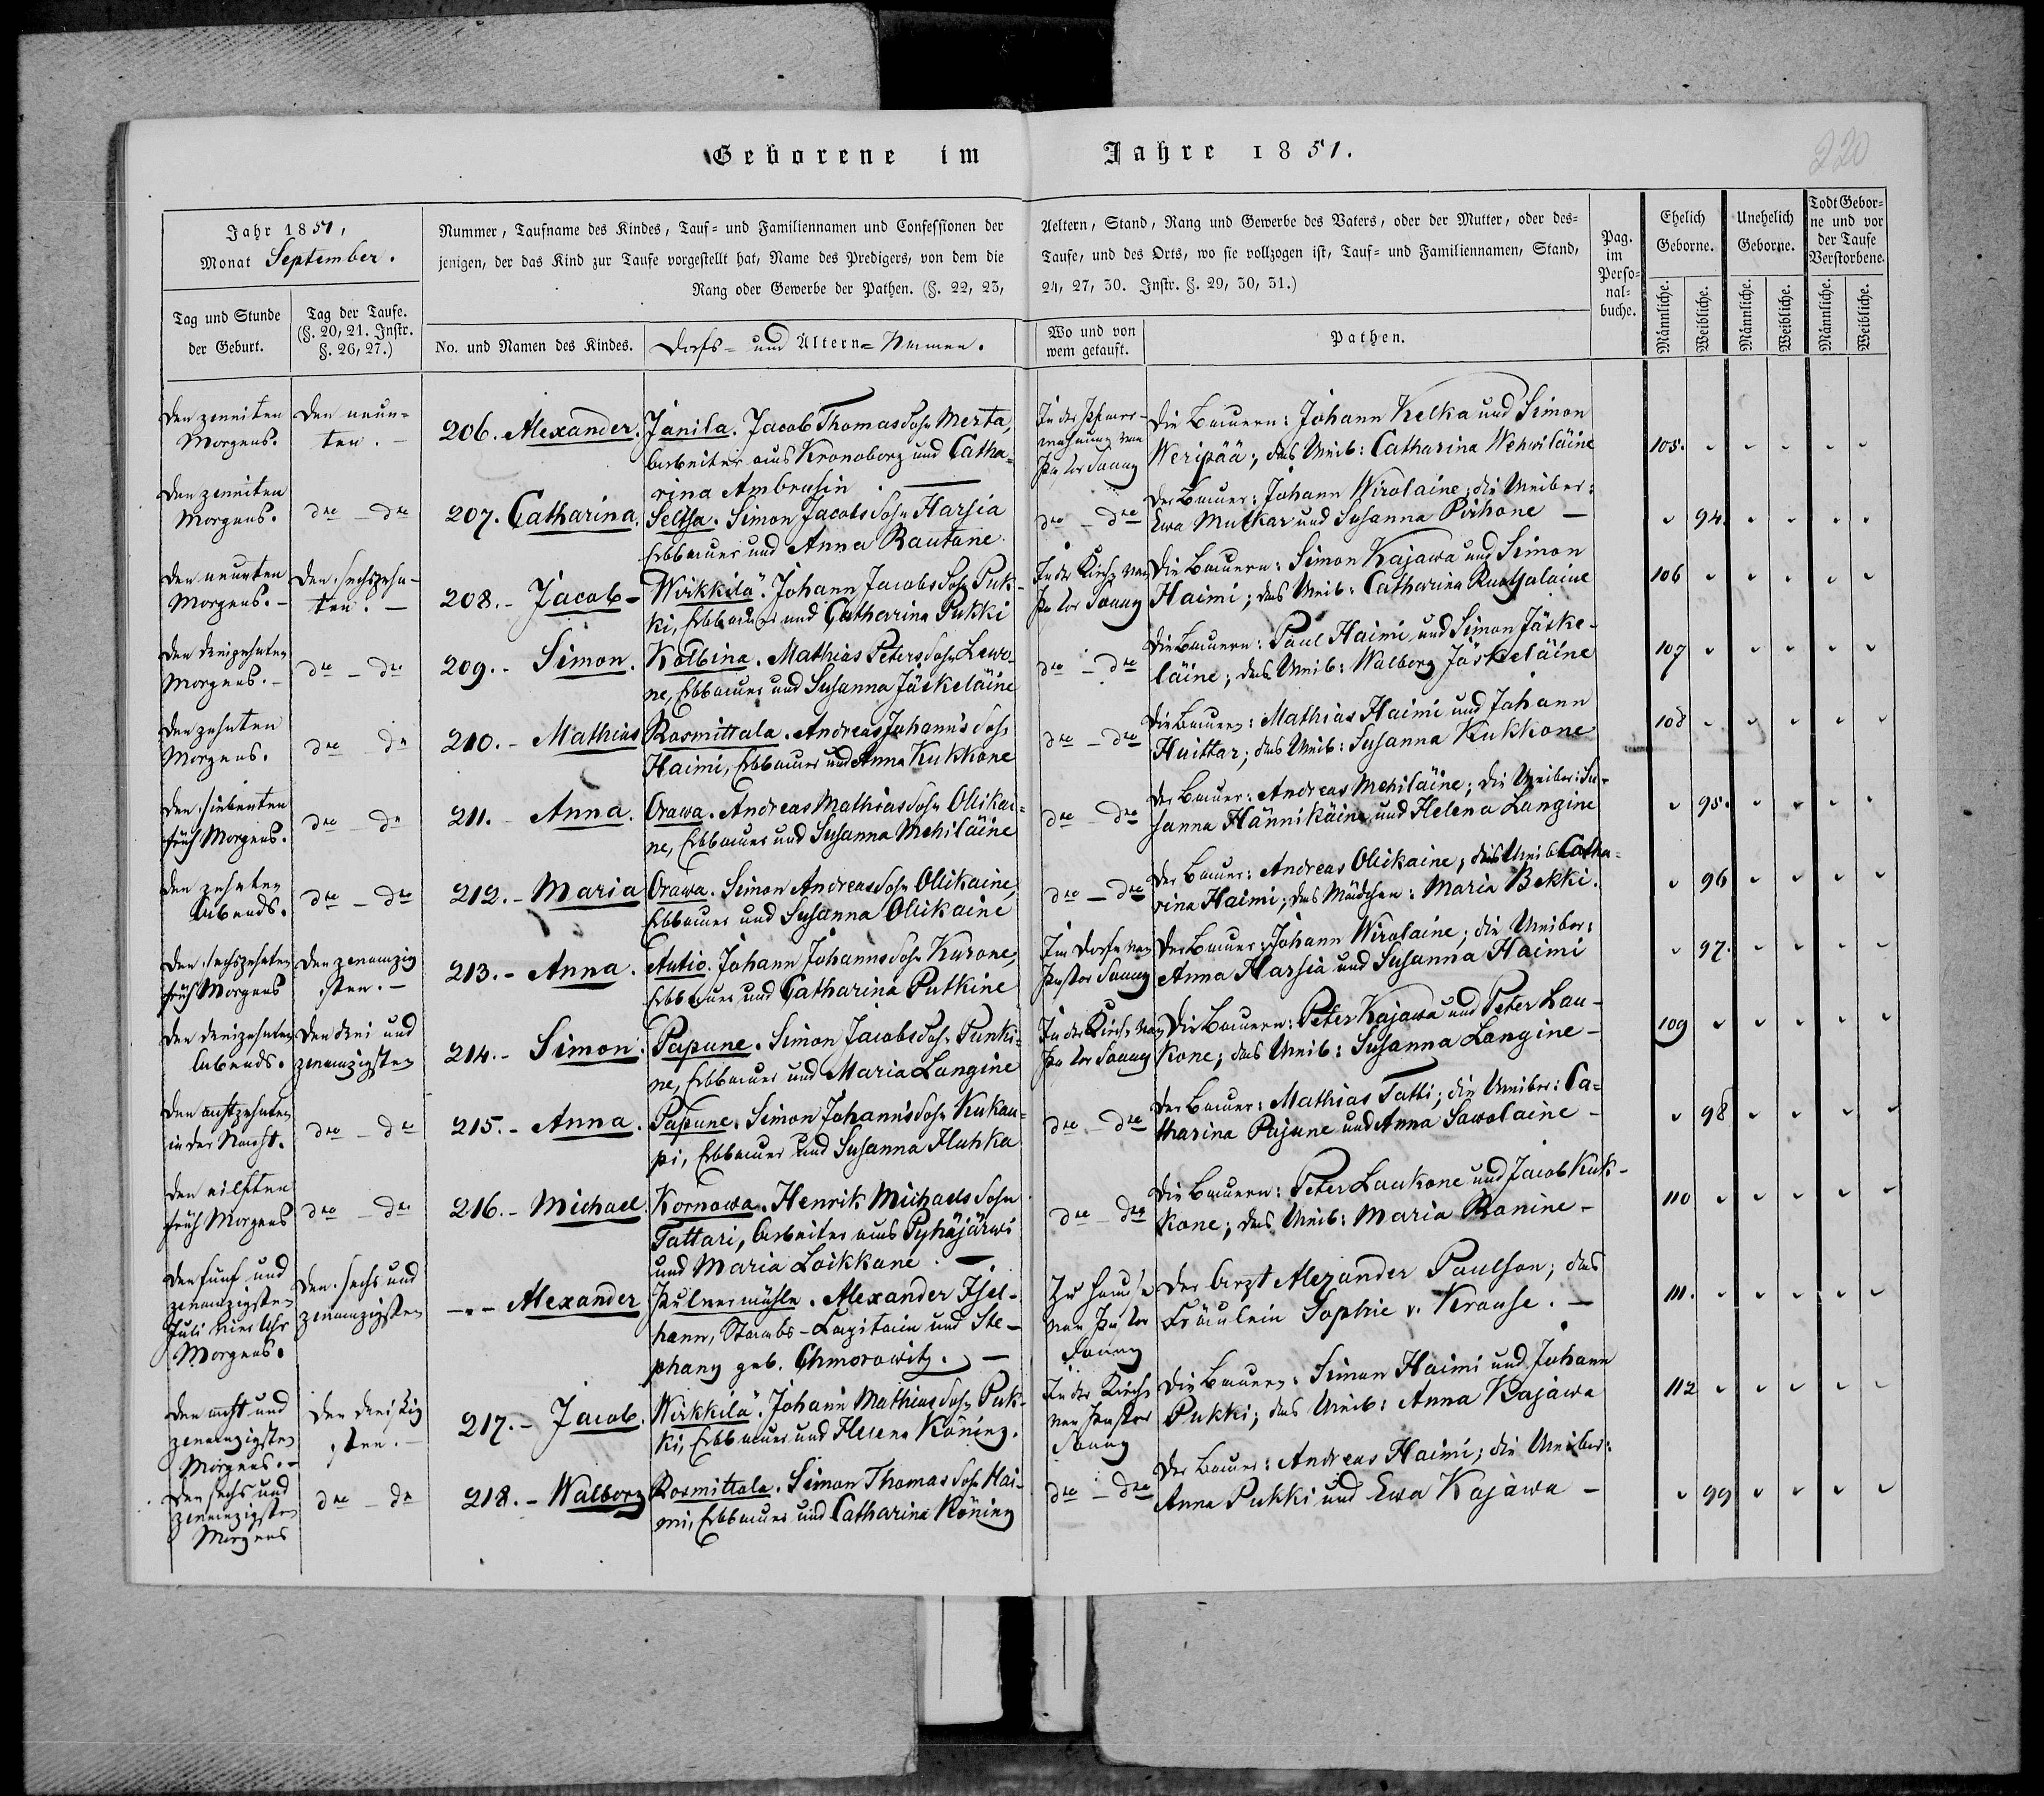 Geborene im Jahre 1851.
220
Jahr 1851,
Monat September.
Nummer, Taufname des Kindes, Tauf- und Familiennamen und Confessionen der
jenigen, der das Kind zur Taufe vorgestellt hat, Name des Predigers, von dem die
Rang oder Gewerbe der Pathen. (§. 22, 23,
Aeltern, Stand, Rang und Gewerbe des Vaters, oder der Mutter, oder des-
Taufe, und des Orts, wo sie vollzogen ist, Tauf- und Familiennamen, Stand,
24, 27, 30. Instr. §. 29, 30, 31.)
Pag.
im
Perso-
nal-
buche.
Ehelich
Geborne.
Unehelich
Geborne.
Todt Gebor-
ne und vor
der Taufe
Verstorbene.
Tag und Stunde
der Geburt.
Tag der Taufe.
(§. 20, 21. Instr.
§. 26, 27.)
No. und Namen des Kindes.
Dorfs- und Altern-Namen.
Wo und von
wem getauft.
Pathen.
Männliche.
Weibliche.
Männliche.
Weibliche.
Männliche.
Weibliche.
Den zweiten
Morgens.
Den neun-
ten. -
206. Alexander.
Janila. Jacob Thomas Sohn Merta,
Arbeiter aus Kronoborg und Catha-
rina Ambrusin
In der Pfarr-
wohnung von
Pastor
Die Bauern: Johann Kelka und Simon
Weripää; das Weib: Catharina Wehwiläine
105.
Den zweiten
Morgens.
dto - dto
207. Catharina.
Seltsa. Simon Jacobs Sohn Harsia
Erbbauer und Anna Rautane
dto - dto
Der Bauer: Johann Wirolaine; die Weiber:
Ewa Mutkar und Susanna Pirhone -
94.
Den neunten
Morgens. -
Den sechszehn-
ten. -
208. - Jacob -
Wirkkilä. Johann Jacobs Sohn Puk-
ki, Erbbauer und Catharina Pukki
In der Kirche von
Pastor
Die Bauern: Simon Kajawa und Simon
Haimi; das Weib: Catharina Ruotsalaine
106
Den dreizehnten
Morgens. -
dto - dto
209. - Simon.
Kolbina. Mathias Peters Sohn Lewo-
ne, Erbbauer und Susanna Jäskeläine
dto - dto
Die Bauern: Paul Haimi und Simon Jäske-
läine; das Weib: Walborg Jäskeläine
107
Den zehnten
Morgens.
dto dto
210. - Mathias
Rosmittala. Andreas Johanns Sohn
Haimi, Erbbauer und Anna Kukkone
dto - dto
Die Bauern: Mathias Haimi und Johann
Huittar; das Weib: Susanna Kukkone
108
Den siebenten
früh Morgens.
dto - dto
211. - Anna.
Orawa. Andreas Mathias Sohn Ollikai-
ne, Erbbauer und Susanna Mehiläine
dto - dto
Der Bauer: Andreas Mehiläine; die Weiber: Su-
sanna Hännikäine und Helena Langine
95.
Den zehnten
Abends.
dto - dto
212. - Maria
Orawa. Simon Andreas Sohn Ollikaine,
Erbbauer und Susanna Ollikaine
dto - dto
Der Bauer: Andreas Ollikaine; das Weib Catha-
rina Haimi; das Mädchen: Maria Bekki.
96
Den sechszehnten
früh Morgens
Den zwanzig
sten. -
213. - Anna.
Autio. Johann Johanns Sohn Kurone,
Erbbauer und Catharina Putkine
Im Dorfe von
Pastor
Der Bauer: Johann Wirolaine; die Weiber:
Anna Harsia und Susanna Haimi
97.
Den dreizehnten
Abends.
Den drei und
zwanzigsten
214. - Simon.
Papune. Simon Jacobs Sohn Punki-
ne, Erbbauer und Maria Langine
In der Kirche von
Pastor
Die Bauern: Peter Kajawa und Peter Lau-
kone; das Weib: Susanna Langine -
109
Den achtzehnten
in der Nacht.
dto - dto
215. - Anna.
Papune. Simon Johanns Sohn Kukau-
pi, Erbbauer und Susanna Huhka
dto - dto
Der Bauer: Mathias Tatti; die Weiber: Ca-
tharina Pajune und Anna Sawolaine -
98
Den eilften
früh Morgens
dto - dto
216. - Michael
Kornowa. Henrik Michaels Sohn
Tattari, Arbeiter aus Pyhäjärwi
und Maria Loikkane. -
dto - dto
Die Bauern: Peter Laukone und Jacob Kuk-
kone; das Weib: Maria Ronine -
110
Den fünf und
zwanzigsten
Juli vier Uhr
Morgens.
Den sechs und
zwanzigsten
-"- Alexander
Pulvermühle. Alexander
Staabs-Capitain und Ste-
phany geb. Chmorowitz. -
Zu Hause
von Pastor
Der Arzt Alexander Paulson; das
Fräulein Sophie v. Krause. -
111.
Den acht und
zwanzigsten
Morgens. -
Den dreißig
sten. -
217. - Jacob.
Wirkkilä. Johann Mathias Sohn Puk-
ki, Erbbauer und Helena Köning.
In der Kirche
von Pastor
Die Bauern: Simon Haimi und Johann
Pukki; das Weib: Anna Kajawa
112
Den sechs und
zwanzigsten
Morgens
dto - dto
218. - Walborg
Rosmittala. Simon Thomas Sohn Hai-
mi, Erbbauer und Catharina Köning
dto - dto
Der Bauer: Andreas Haimi; die Weiber:
Anna Pukki und Ewa Kajawa -
99